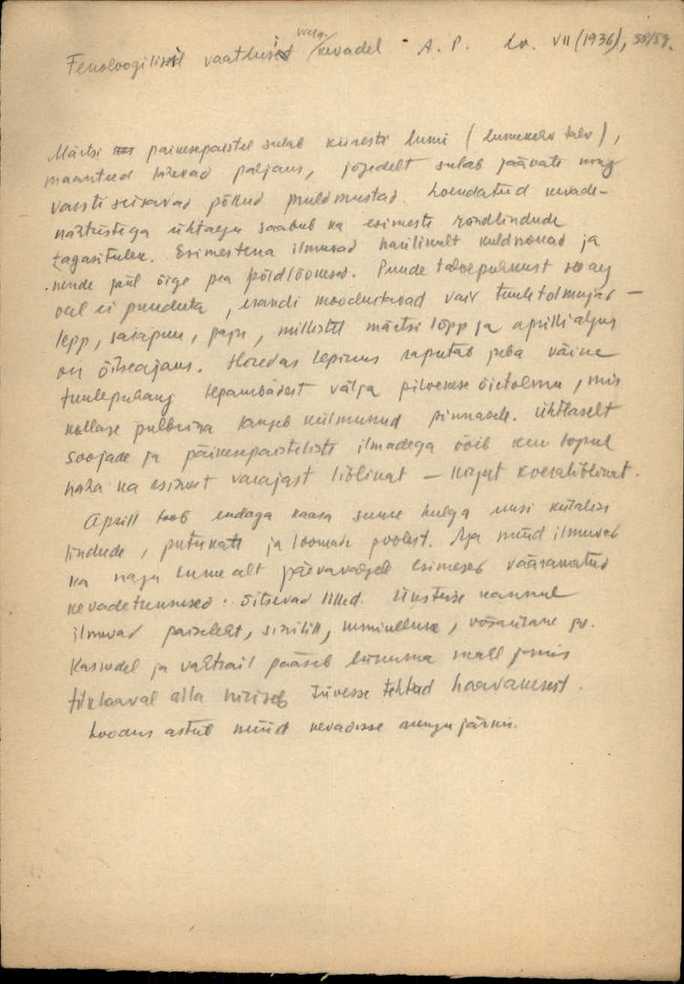 Fenoloogilisi vaatlusi varakevadel A. P. Lv. VII (1936), 58/59.
Märtsi päikesepaistel sulab kiiresti lumi (lumekate talv),
maanteed lähevad paljaks, jõgedelt sulab jäävaip ning
varsti seisavad põllud muldmustad. Loendatud kevade-
nähtustega ühtaegu saabub ka esimeste rändlindude
tagasitulek. Esimestena ilmuvad harilikult kuldnokad ja
nende järel õige pea põldlõokesed. Puude talvepuhkust see aeg
veel ei puuduta, erandi moodustavad vaid tuuletolmujad –
lepp, sarapuu, paju, millistel märtsi lõpp ja aprilli algus
on õitseajaks. Hõredas lepikus raputab juba väike
tuulepuhang lepaurbadest välja pilvekese õietolmu, mis
kollase pulbrina langeb külmunud pinnasele. Ühtlaselt
soojade ja päikesepaisteliste ilmadega võib kuu lõpul
näha ka esimest varajast liblikat – kirjut koerliblikat.
Aprill toob endaga kaasa suure hulga uusi külalisi
lindude, putukate ja loomade poolest. Aja nüüd ilmuvad
ka nagu lume alt päevavalgele esimesed vääramatud
kevadetunnused: õitsevad lilled. Üksteise kannul
ilmuvad paiseleht, sinilill, nurmenukk, võsaülane jt.
Kaskedel ja vahtrail pääseb liikuma mahl ja
tilkhaaval alla niriseb tüvesse tehtud haavakesest.
Loodus astub nüüd kevadisse mängu järku.